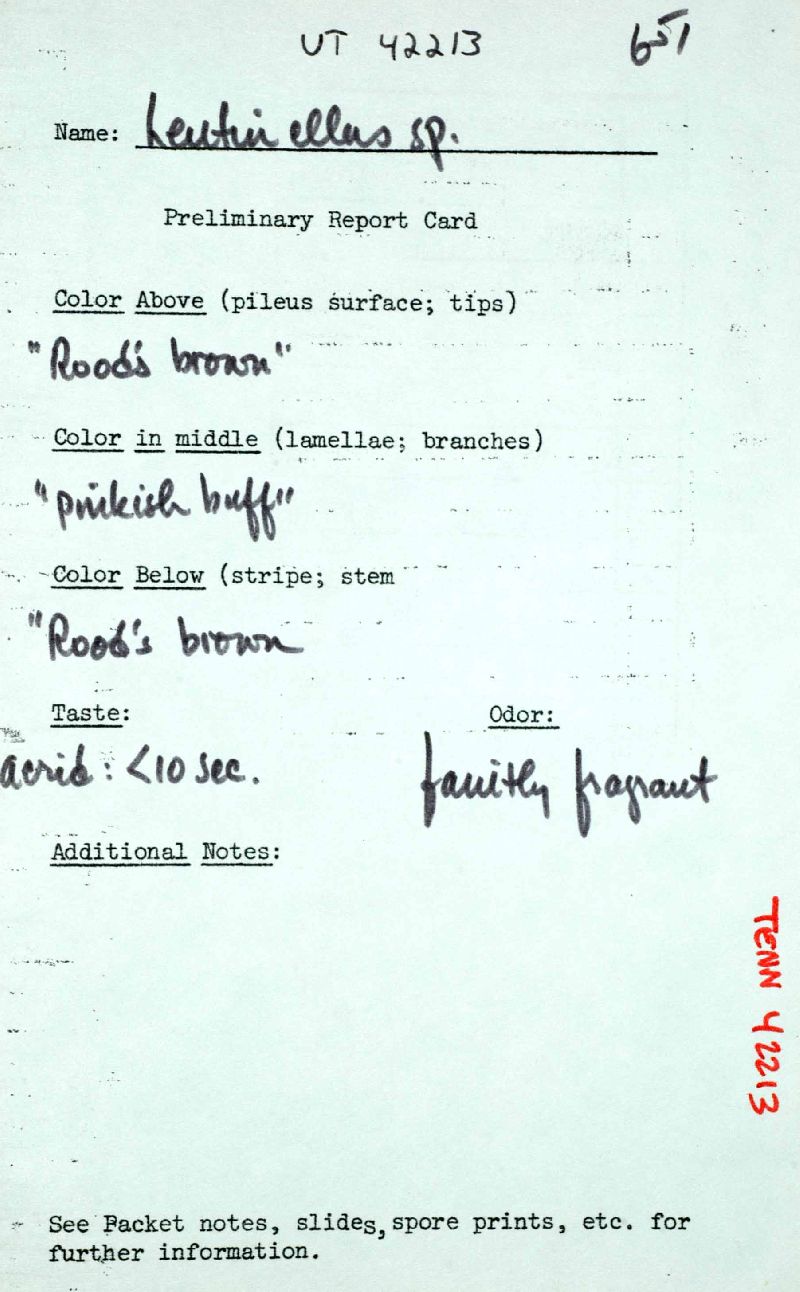 UT 42213 651
Name: Lentinellus sp.
Preliminary Report Card
Color Above (pileus surface; tips)
"Rood's brown"
Color in middle (lamellae; branches)
"pinkish buff"
Color Below (stripe; stem
"Rood's brown
Taste: Odor:
acrid: <10 sec. fanitly fragrant
Additional Notes:
TENN 42213
See Packet notes, slides, spore prints, etc. for
further information.